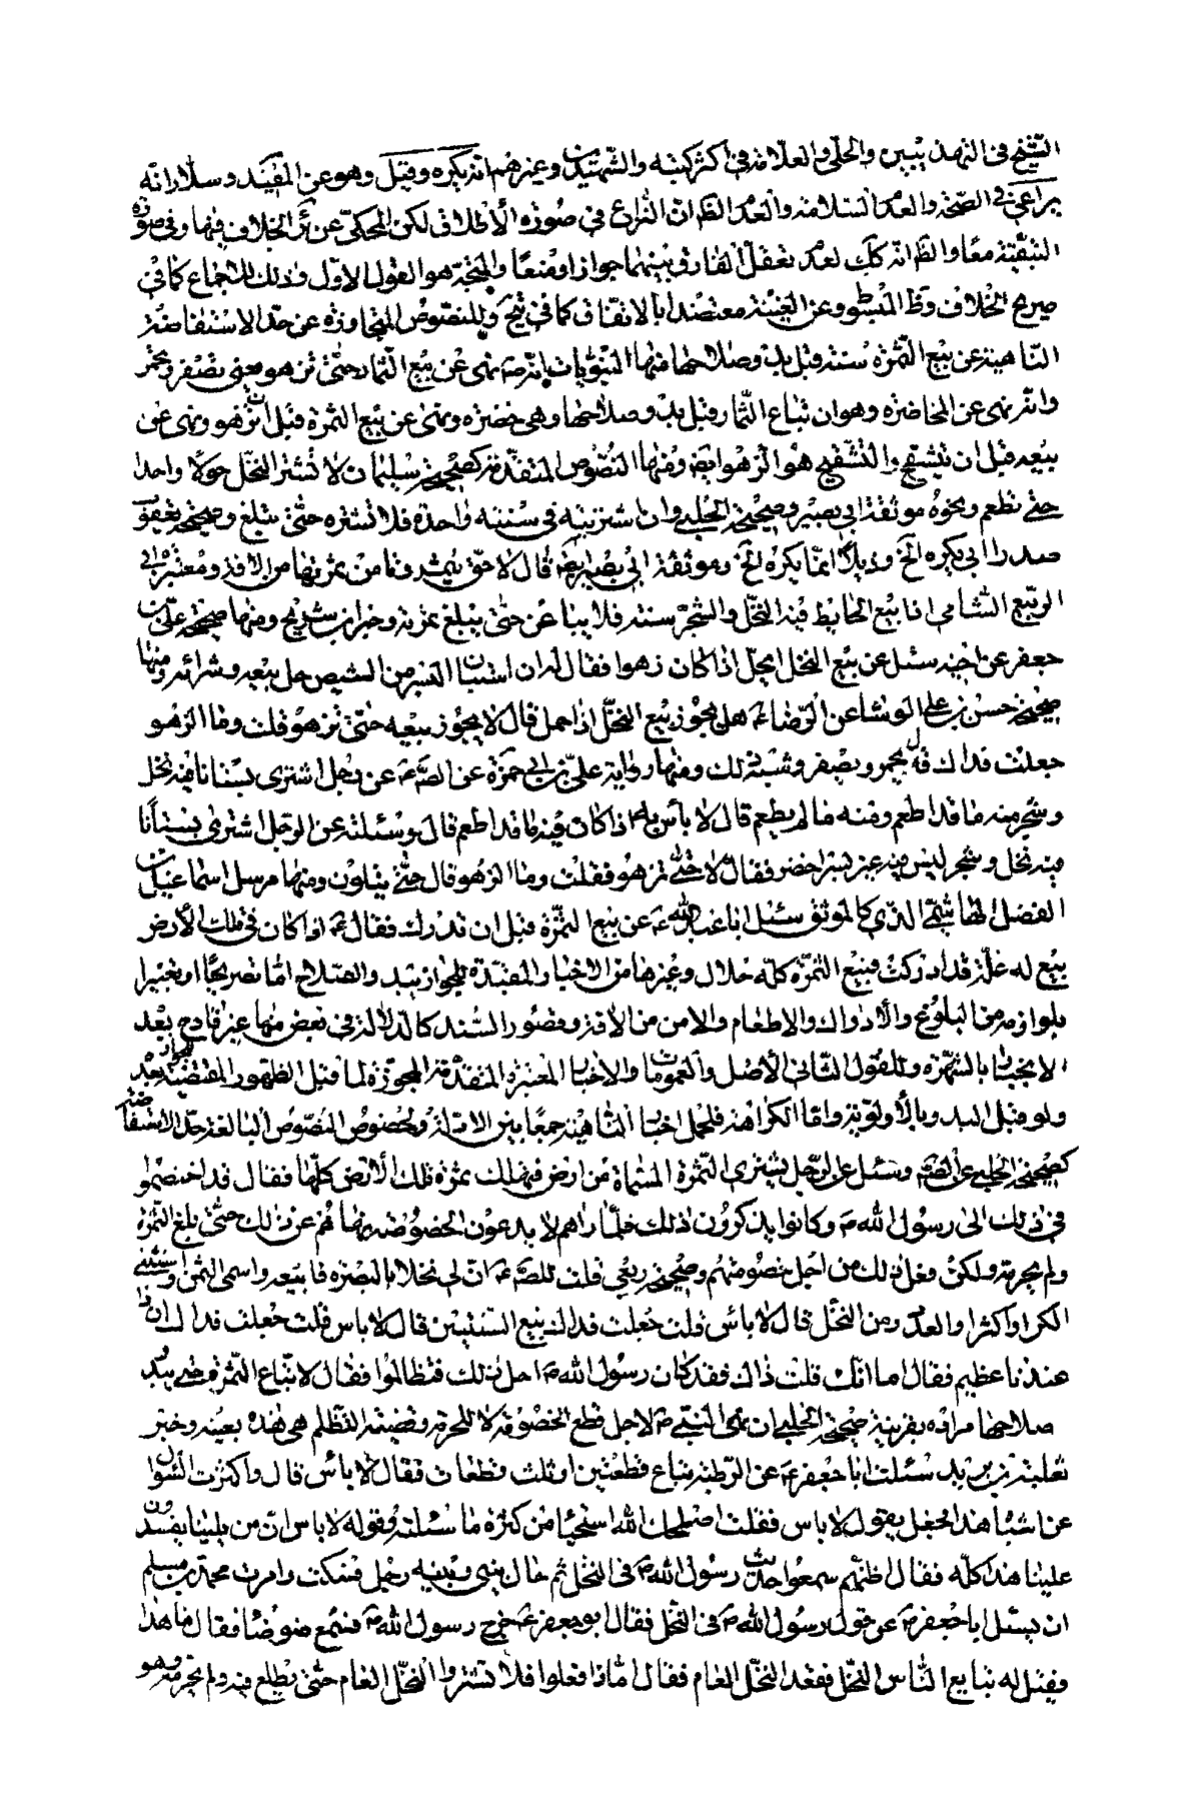 الشيخ في التهذيبين والحلي والعلامة في اكثر كتبه والشهيدين وغيرهم انه يكره وقيل وهو عن المفيد وسلار انه
يراعى في الصحة والعدم السلامة والعدم الظ ان النزاع في صورة الأطلاق لكن المحكى عن كز الخلاف فيها وفى صورة
التبقية معا والظ انه كك لعدم تعقل الفارق بينهما جوازا ومنعا والمتجه هو القول الاول وذلك للاجماع كما في
صريح الخلاف وظ المبسوط وعن الغنية معتضدا بالاتفاق كما في يج وللنصوص المتجاوزة عن حد الاستفاضة
الناهية عن بيع الثمرة سنة قبل بدو صلاحها منها النبويات بانه ص نهى عن بيع الثمار حتى تزهو يعنى تصفر وتحمر
وانه نهى عن المخاضرة وهو ان تباع الثمار قبل بدو صلاحها وهي خضرة ونهى عن بيع الثمرة قبل ان تزهو ونهى عن
بيعه قبل ان تشقح والتشقيح هو الزهو ايضا ومنها النصوص المتقدمة كصحيحة سليمان لا تشتر النخل حولا واحدا
حتى تطعم ونحوه موثقة ابى بصير وصحيحة الحلبي وان اشتريته في سنته واحدة فلا تشتره حتى يبلغ وصحيحة يعقوب
صدرا ابى يكره الخ وذيلا انما يكره الخ وموثقة ابى بصير ايضا قال لا حتى يثمر وتامن ثمرتها من الافة ومعتبرة ابى
الربيع الشامى اذا بيع الحايط فيه النخل والشجر سنة فلا يباعن حتى يبلغ ثمرته وخبر ابن شريح ومنها صحيحة على بن
جعفر عن اخيه سئل عن بيع النخل ايحل اذا كان زهوا فقال له ان استبان البسر من الشيص حل بيعه وشرائه ومنها
صحيحة حسن بن على الوشا عن الرضا ع هل يجوز بيع النخل اذا حمل قال لا يجوز بيعه حتى تزهو قلت وما الزهو
جعلت فداك قال يحمر ويصفر وشبه ذلك ومنها رواية على بن ابى حمزة عن الص ع عن رجل اشترى بستانا فيه نخل
وشجر منه ما قد اطعم ومنه ما لم يطعم قال لا باس به اذا كان فيه ما قد اطعم قال وسئلته عن الرجل اشترى بستانا
فيه نخل وشجر ليس فيه غير بسر اخضر فقال لا حتى تزهو فقلت وما الزهو قال حتى يتلون ومنها مرسل اسماعيل بن
الفضل الهاشمى الذي كالموثق سئل ابا عبد الله ع عن بيع الثمرة قبل ان تدرك فقال ع اذا كان في تلك الأرض
بيع له غلة قد ادركت فبيع الثمرة كله حلال وغيرها من الاخبار المقيدة للجواز ببدو الصلاح اما تصريحا او تعبيرا
بلوازمه من البلوغ والأدراك والاطعام والامن من الافة وقصور السند كالدلالة في بعض منها غير قادح بعد
الانجبار بالشهرة وللقول الثانى الأصل والعمومات والاخبار المعتبرة المتقدمة المجوزة لما قبل الظهور المقتضية للجواز بعده
ولو قبل البدو بالأولوية واما الكراهة فلحمل اخبار الناهية جمعا بين الادلة ولخصوص النصوص البالغة حد الاستفاضة
كصحيحة الحلبي عن الص ع وسئل عن الرجل يشترى الثمرة المسماة من ارض فهلك ثمرة تلك الأرض كلها فقال قد اختصموا
في ذلك الى رسول الله ص وكانوا يذكرون ذلك فلما راهم لا يدعون الخصومة نهاهم عن ذلك حتى تبلغ الثمرة
ولم يحرمه ولكن فعل ذلك من اجل خصومتهم وصحيحة ربعي قلت للص ع ان لى نخلا بالبصرة فابيعه واسمى الثمن واستثنى
الكر او اكثر او العدد من النخل قال لا باس قلت جعلت فداك بيع السنتين قال لا باس قلت جعلت فداك ان ذا
عندنا عظيم فقال اما انك قلت ذاك فقد كان رسول الله ص احل ذلك فتظالموا فقال لا تباع الثمرة حتى يبدو
صلاحها مراده بقرينة صحيحة الحلبى ان نهى النبي ص لاجل قطع الخصومة لا للحرمة وقضية التظلم هى هذه بعينه وخبر
ثعلبة بن بريد سئلت ابا جعفر ع عن الرطبة تباع قطعتين او ثلث قطعات فقال لا باس قال واكثرت السؤال
عن اشباه هذا فجعل يقول لا باس فقلت اصلحك الله استحيا من كثرة ما سئلته وقوله لا باس ان من يلينا يفسدون
علينا هذا كله فقال اظنهم سمعوا حديث رسول الله ص في النخل ثم حال بينى وبينه رجل فسكت وامرت محمد بن مسلم
ان يسئل ابا جعفر ع عن قول رسول الله ص في النخل فقال ابو جعفر ع خرج رسول الله ص فسمع ضوضا فقال ما هذا
فقيل له تبايع الناس النخل فقعد النخل العام فقال اما اذا فعلوا فلا تشتروا النخل العام حتى يطلع فيه ولم يحرمه وهو